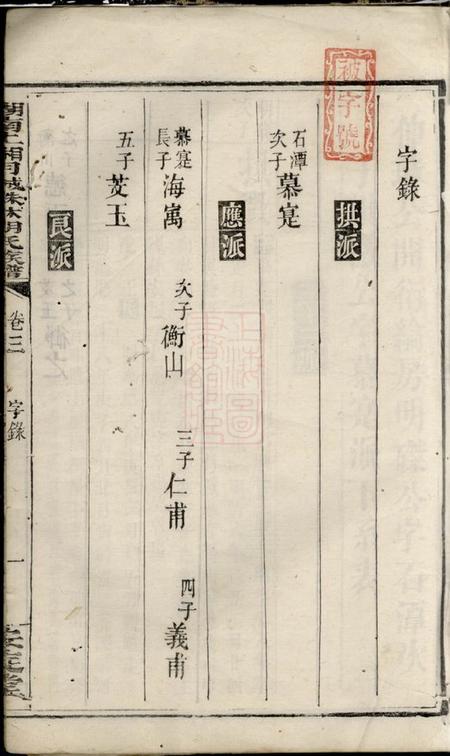 被字號
字錄
拱派
石潭次子慕寔
應派
慕寔長子海寓 次子衡山 三子仁甫 四子義甫
五子芰玉
艮派
胡氏族譜
卷三
字錄
一
上海圖書館藏